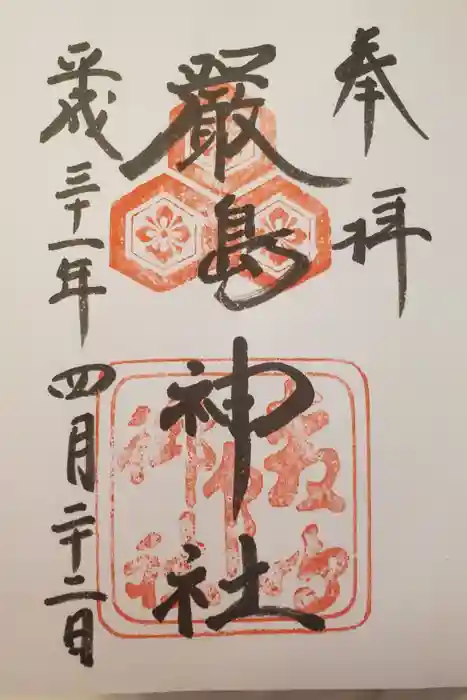 奉拝
厳島神社
平成三十一年四月二十二日